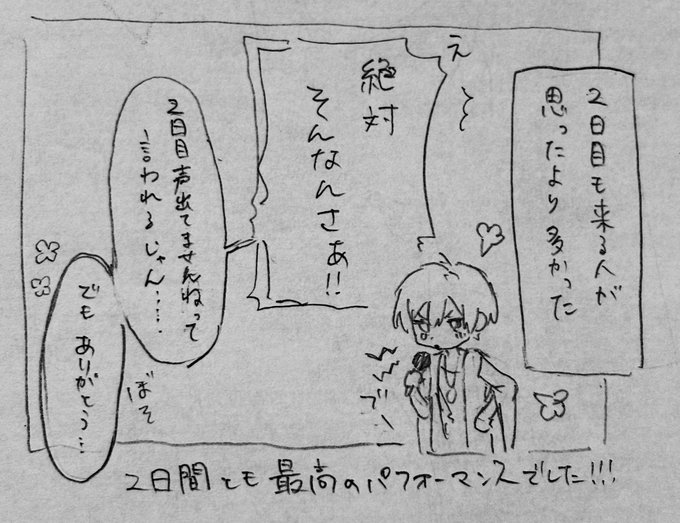 2日目も来る人が
思ったより多かった
え〜〜
絶対
そんなんさぁ!!
2日目声出てませんねって
言われるじゃん……
でもありがとう…
ぼそ
2日間とも最高のパフォーマンスでした!!!